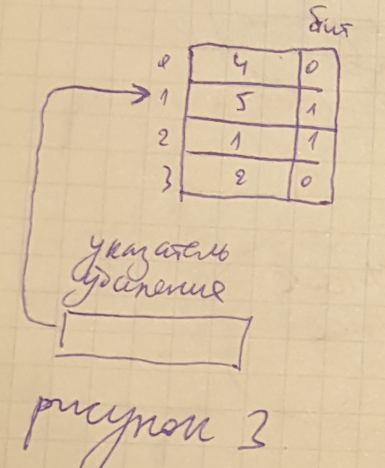 бит
0 4 0
1 5 1
2 1 1
3 2 0
указатель
удаление
рисунок 3